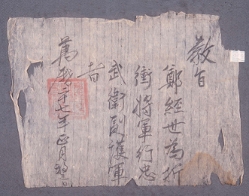 敎旨
鄭經世爲折
衝將軍行忠
武衛副護軍
者
萬曆二十七年正月